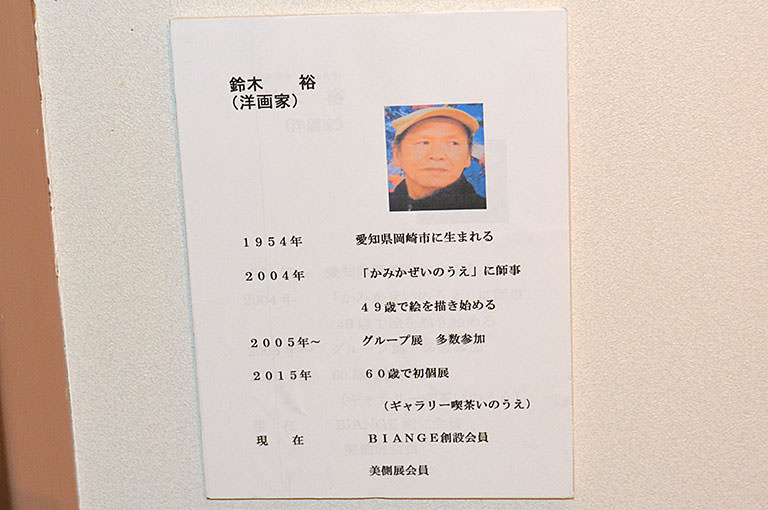 鈴木　　裕
（洋画家）
１９５４年　　　愛知県岡崎市に生まれる
２００４年　　　「かみかぜいのうえ」に師事
４９歳で絵を描き始める
２００５年～　　　グループ展　多数参加
２０１５年　　　６０歳で初個展
（ギャラリー喫茶いのうえ）
現　在　　　ＢＩＡＮＧＥ創設会員
美側展会員